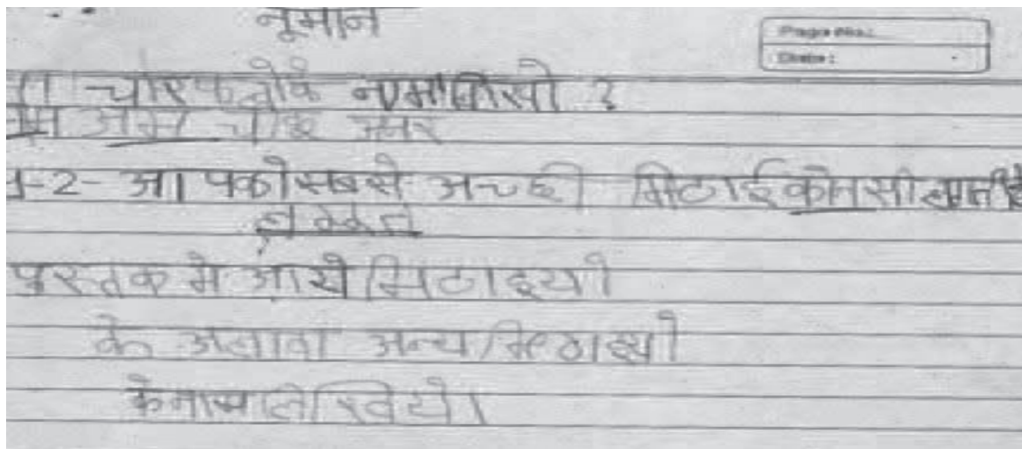 नूमान
Page No.:
Date:
चार फलोके नाम लिखो ?
आम
-2- आपको सबसे अच्छी मिठाई कोनसी लगती है
पुस्तक मे आयी मिठाइयो
के अलावा अन्य मिठाइयो
के नाम लिखिये।